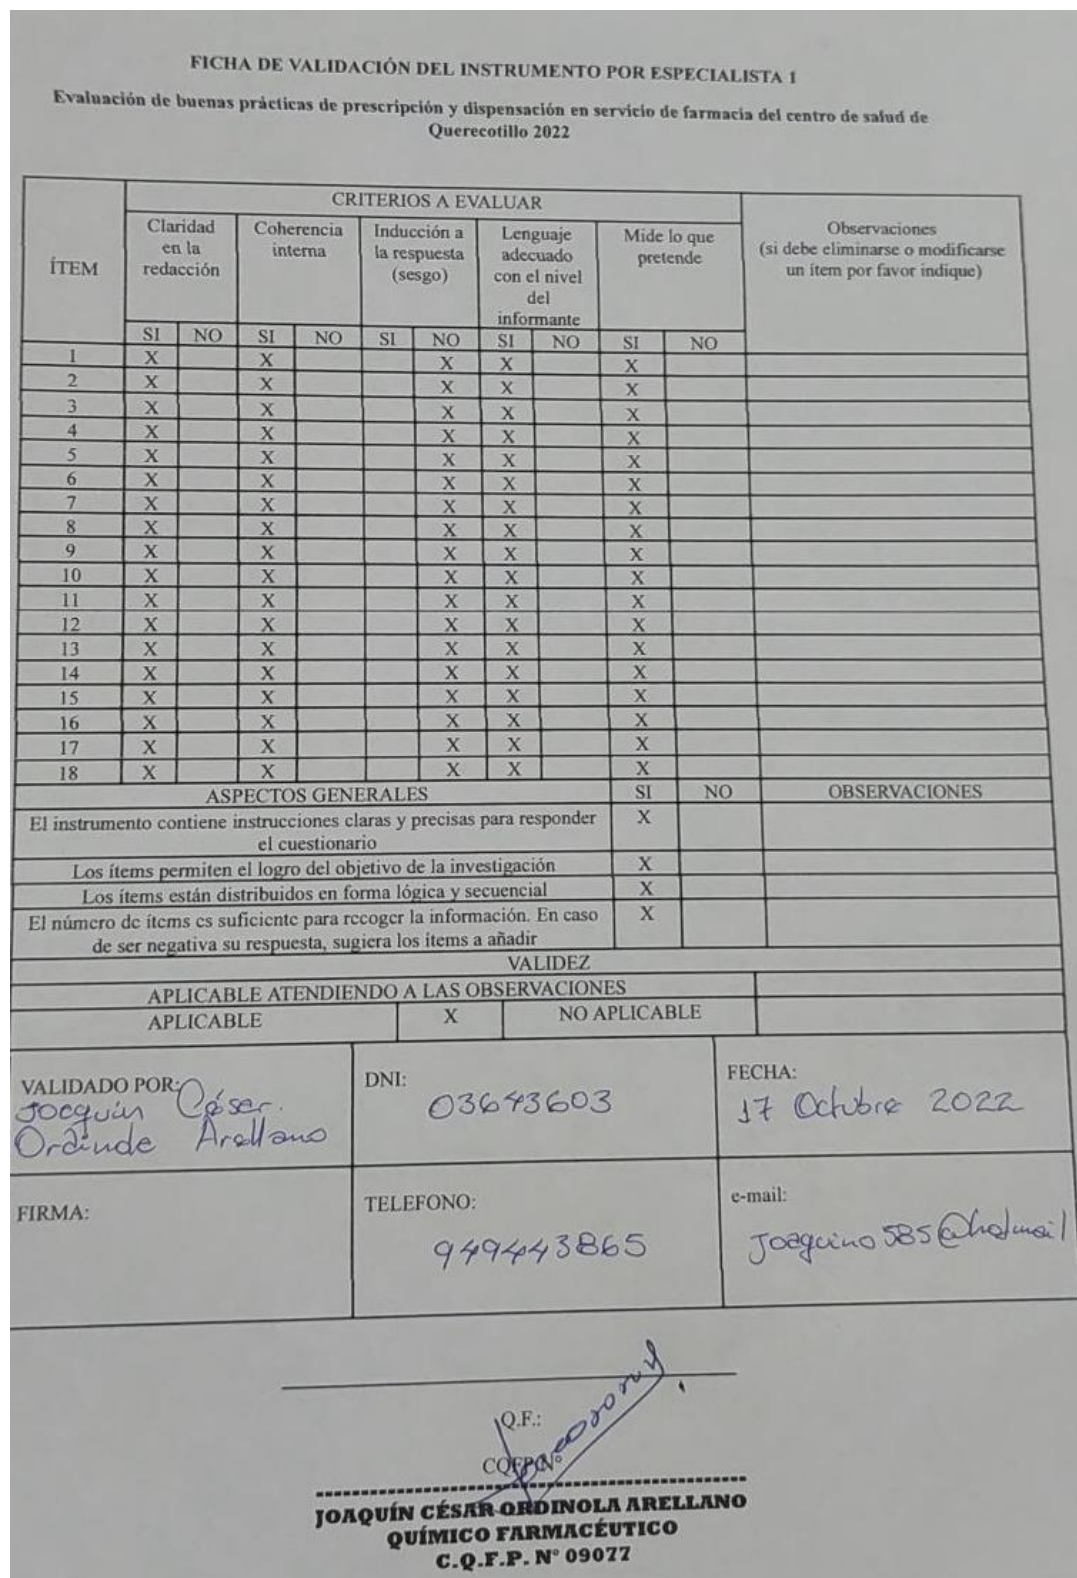 FICHA DE VALIDACIÓN DEL INSTRUMENTO POR ESPECIALISTA 1
Evaluación de buenas prácticas de prescripción y dispensación en servicio de farmacia del centro de salud de
Querecotillo 2022
ÍTEM
CRITERIOS A EVALUAR
Claridad
en la
redacción
Coherencia
interna
Inducción a
la respuesta
(sesgo)
Lenguaje
adecuado
con el nivel
del
informante
Mide lo que
pretende
Observaciones
(si debe eliminarse o modificarse
un ítem por favor indique)
SI NO SI NO SI NO SI NO SI NO
1 X X X X X
2 X X X X X
3 X X X X X
4 X X X X X
5 X X X X X
6 X X X X X
7 X X X X X
8 X X X X X
9 X X X X X
10 X X X X X
11 X X X X X
12 X X X X X
13 X X X X X
14 X X X X X
15 X X X X X
16 X X X X X
17 X X X X X
18 X X X X X
ASPECTOS GENERALES SI NO OBSERVACIONES
El instrumento contiene instrucciones claras y precisas para responder X
el cuestionario
Los ítems permiten el logro del objetivo de la investigación X
Los ítems están distribuidos en forma lógica y secuencial X
El número de ítems es suficiente para recoger la información. En caso X
de ser negativa su respuesta, sugiera los ítems a añadir
VALIDEZ
APLICABLE ATENDIENDO A LAS OBSERVACIONES
APLICABLE X NO APLICABLE
VALIDADO POR:
Joaquín César
Arellano
DNI:
03643603
FECHA:
17 Octubre 2022
FIRMA:
TELEFONO:
949443865
e-mail:
Joaquino585@hotmail
Q.F.:
CQFP Nº
JOAQUÍN CÉSAR ORDINOLA ARELLANO
QUÍMICO FARMACÉUTICO
C.Q.F.P. Nº 09077